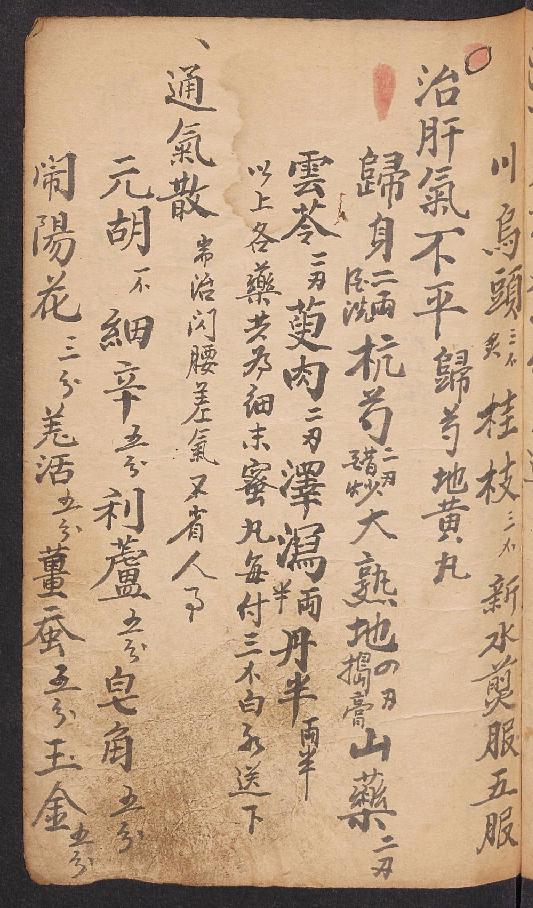 川烏頭三不炙桂枝三不新水煎服五服
治肝氣不平歸芍地黃丸
歸身二兩杭芍二刃醋炒大熟地搗膏山藥二刃
雲苓二刃萸肉二刃澤瀉兩半丹半兩半
以上各藥共為細末蜜丸每付三不白水送下
通氣散
耑治閃腰差氣不省人事
元胡一不細辛五分利蘆五分皂角五分
鬧陽花三分羌活五分薑蚕五分玉金五分